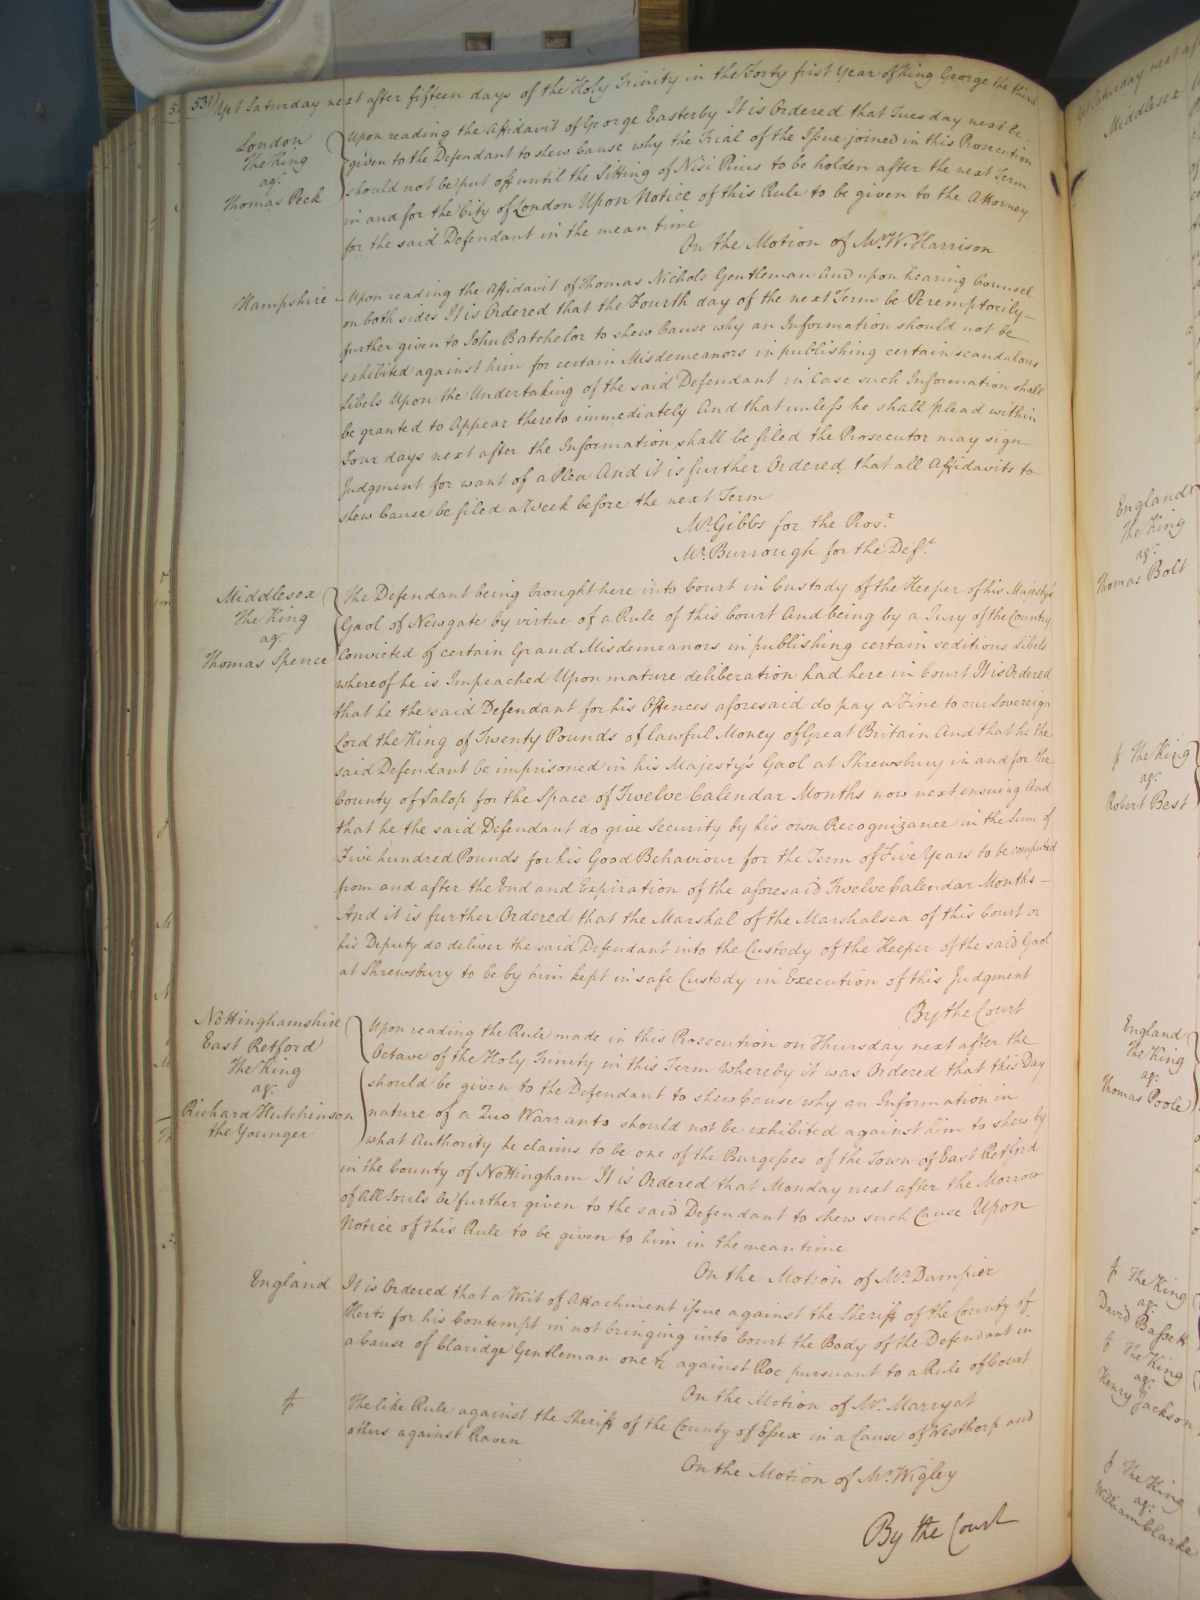 531 Upt Saturday next after fifteen days of the Holy Trinity in the Forty first Year of King George the third
London
The King
agt.
Thomas Peck
Upon reading the Affidavit of George Easterby It is Ordered that Tuesday next be
given to the Defendant to shew Cause why the Trial of the Issue joined in this Prosecution
should not be put off until the Sitting of Nisi Prius to be holden after the next Term
in and for the City of London Upon Notice of this Rule to be given to the Attorney
for the said Defendant in the mean time
On the Motion of Mr. W. Harrison
Hampshire
Upon reading the Affidavit of Thomas Nichols Gentleman And upon hearing Counsel
on both sides It is Ordered that the Fourth day of the next Term be Peremptorily
further given to John Batchelor to shew Cause why an Information should not be
exhibited against him for certain Misdemeanors in publishing certain scandalous
Libels Upon the Undertaking of the said Defendant in Case such Information shall
be granted to Appear thereto immediately And that unless he shall plead within
Four days next after the Information shall be filed the Prosecutor may sign
Judgment for want of a Plea And it is further Ordered that all Affidavits to
shew Cause be filed a Week before the next Term
Mr. Gibbs for the Pros.r
Mr. Burrough for the Def.t
Middlesex
The King
agt.
Thomas Spence
The Defendant being brought here into Court in Custody of the Keeper of his Majesty's
Gaol of Newgate by virtue of a Rule of this Court And being by a Jury of the County
Convicted of certain Grand Misdemeanors in publishing certain seditious Libels
whereof he is Impeached Upon mature deliberation had here in Court It is Ordered
that he the said Defendant for his Offences aforesaid do pay a Fine to our Sovereign
Lord the King of Twenty Pounds of lawful Money of Great Britain And that he the
said Defendant be imprisoned in his Majesty's Gaol at Shrewsbury in and for the
County of Salop for the Space of Twelve Calendar Months now next ensuing And
that he the said Defendant do give Security by his own Recognizance in the Sum of
Five hundred Pounds for his Good Behaviour for the Term of Five Years to be computed
from and after the End and Expiration of the aforesaid Twelve Calendar Months
And it is further Ordered that the Marshal of the Marshalsea of this Court or
his Deputy do deliver the said Defendant into the Custody of the Keeper of the said Gaol
at Shrewsbury to be by him kept in safe Custody in Execution of this Judgment
By the Court
Nottinghamshire
East Retford
The King
agt.
Richard Hutchinson
the Younger
Upon reading the Rule made in this Prosecution on Thursday next after the
Octave of the Holy Trinity in this Term whereby it was Ordered that this Day
should be given to the Defendant to shew Cause why an Information in
nature of a Quo Warranto should not be exhibited against him to shew by
what Authority he claims to be one of the Burgesses of the Town of East Retford
in the County of Nottingham It is Ordered that Monday next after the Morrow
of All Souls be further given to the said Defendant to shew such Cause Upon
Notice of this Rule to be given to him in the mean time
On the Motion of Mr. Dampier
England
It is Ordered that a Writ of Attachment issue against the Sheriff of the County of
Herts for his Contempt in not bringing into Court the Body of the Defendant in
a Cause of Claridge Gentleman one &c against Roe pursuant to a Rule of Court
On the Motion of Mr. Maryat
The like Rule against the Sheriff of the County of Essex in a Cause of Westhorp and
others against Raven
On the Motion of Mr. Wigley
By the Court
Middlesex
England
The King
agt.
Thomas Bolt
The King
agt.
Robert Best
England
The King
agt.
Thomas Poole
The King
agt.
David Bassett
The King
agt.
Henry Jackson
The King
agt.
William Clarke